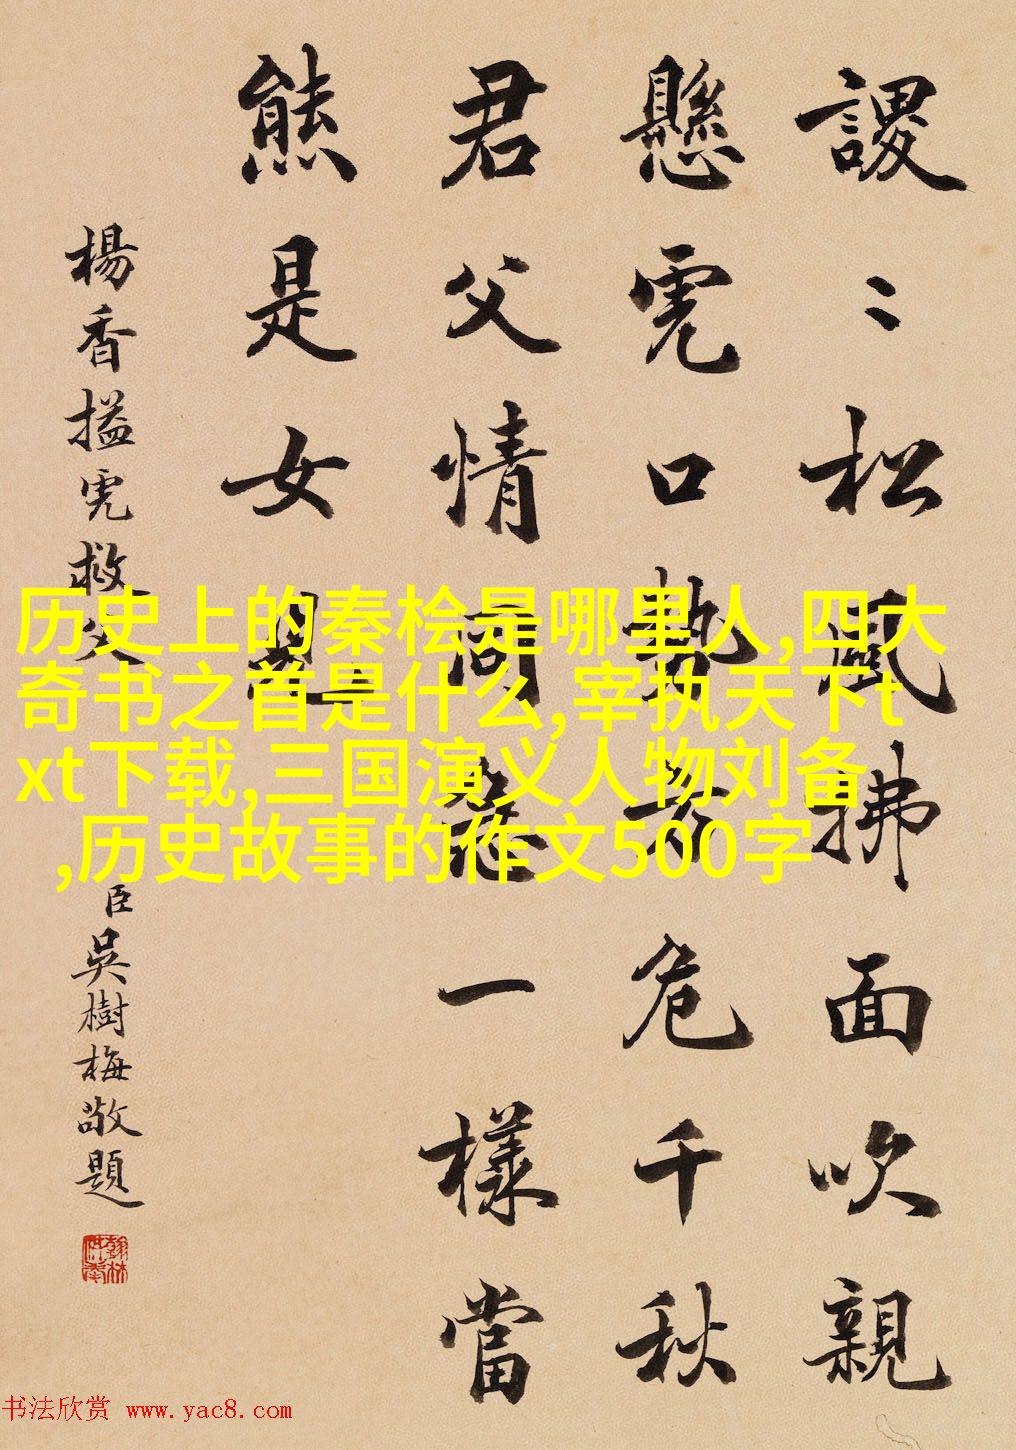 謖〻松風拂面吹親
懸虎口勢方危千秋
君父情同急一樣當
熊是女兒
楊香搤虎救父
臣吳樹梅敬題
翰林供奉
历史上的秦桧是哪里人,四大
奇书之首是什么,宰执天下t
xt下载,三国演义人物刘备
,历史故事的作文500字
书法欣赏 www.yac8.com